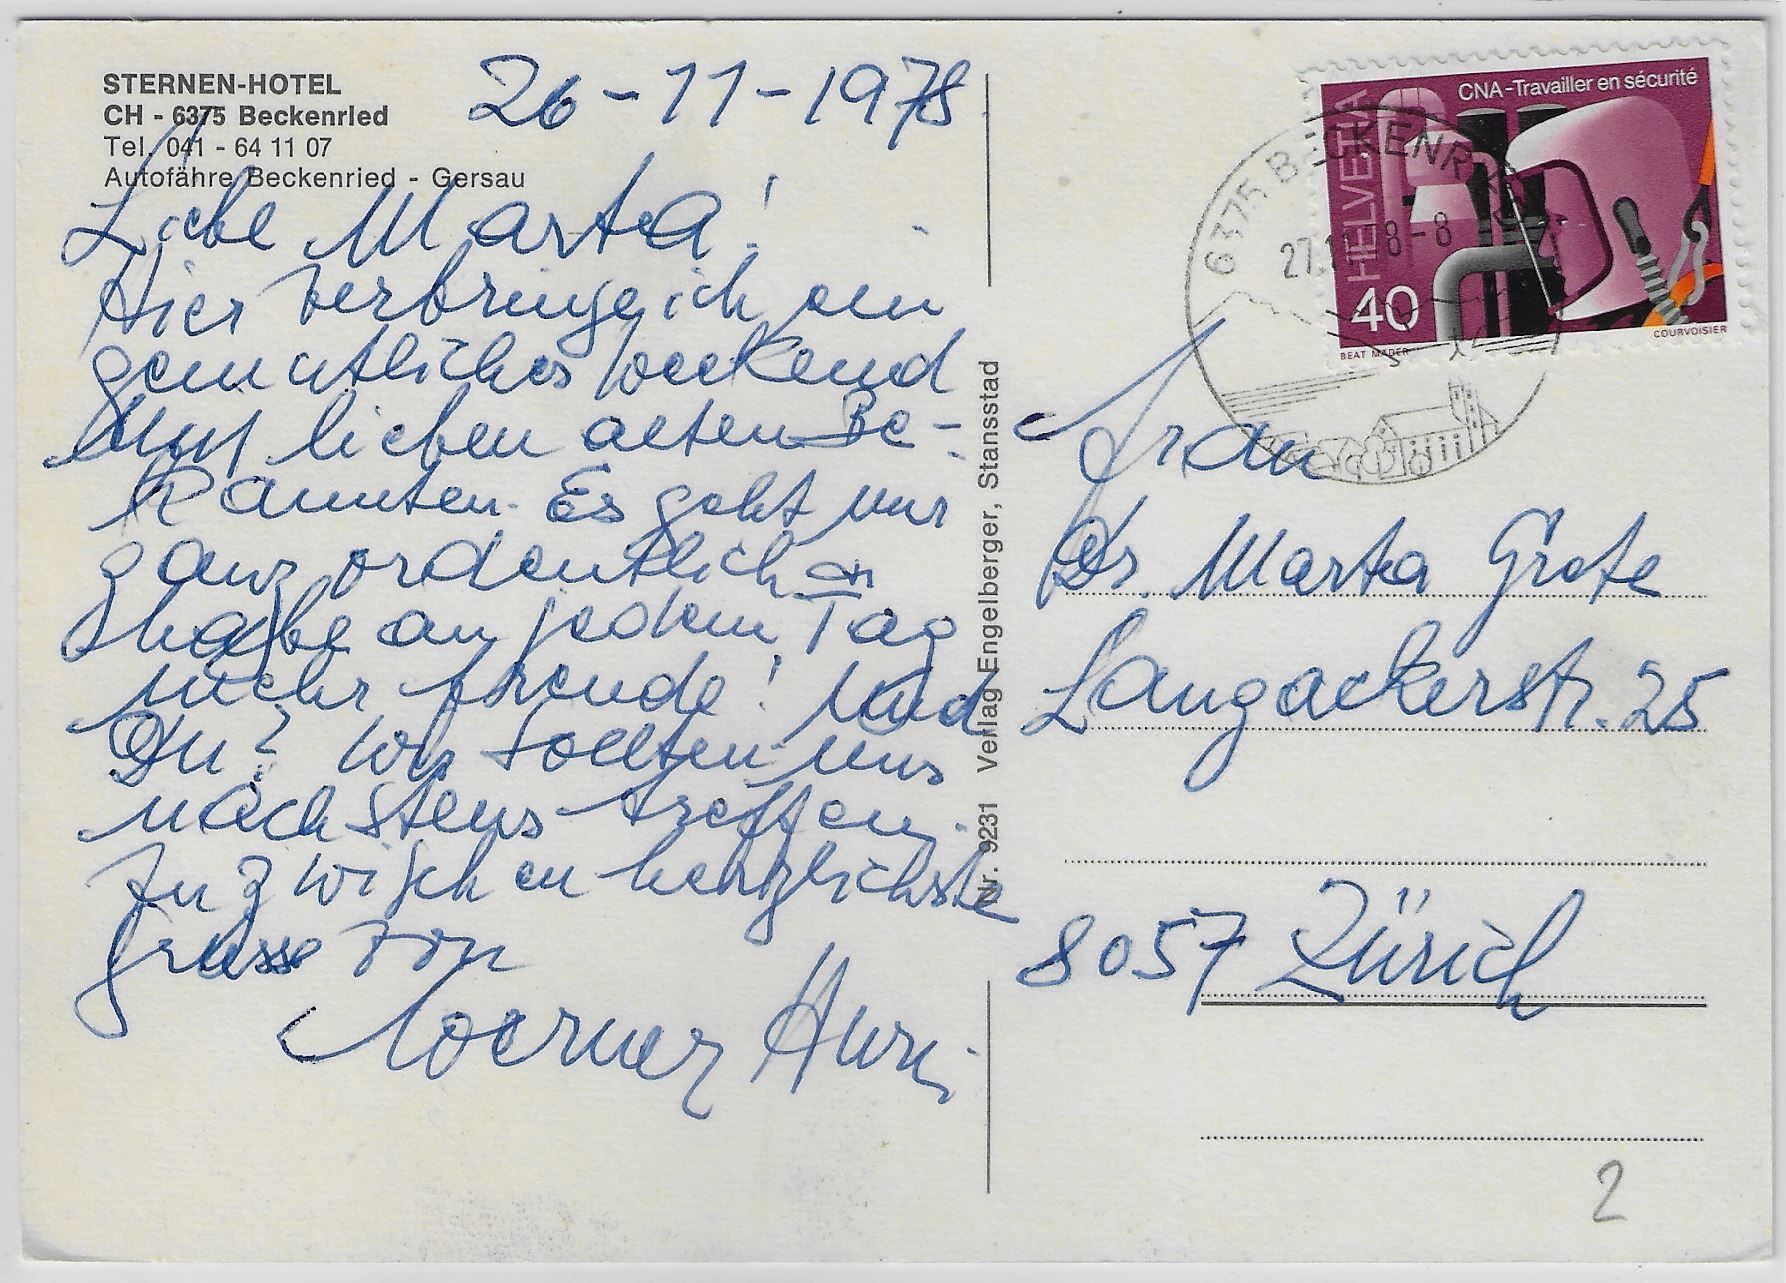 STERNEN-HOTEL
CH - 6375 Beckenried
Tel. 041 - 64 11 07
Autofähre Beckenried - Gersau
26-11-1978
Liebe Marta!
Hier verbringe ich ein
gemütliches Weekend
mit lieben alten Be-
kannten. Es geht mir
ganz ordentlich
habe an jedem Tag
mehr Freude! Und
Du? Wir sollten uns
nächstens treffen.
Inzwischen herzlichste
Grüsse von
Werner
Nr. 9231 Verlag Engelberger, Stansstad
CNA-Travailler en sécurité
HELVETIA
40
BEAT MADER
COURVOISIER
6375 BECKENRIED
27.11.78-8
Frau
Dr. Marta Grote
Langackerstr. 25
8057 Zürich
2